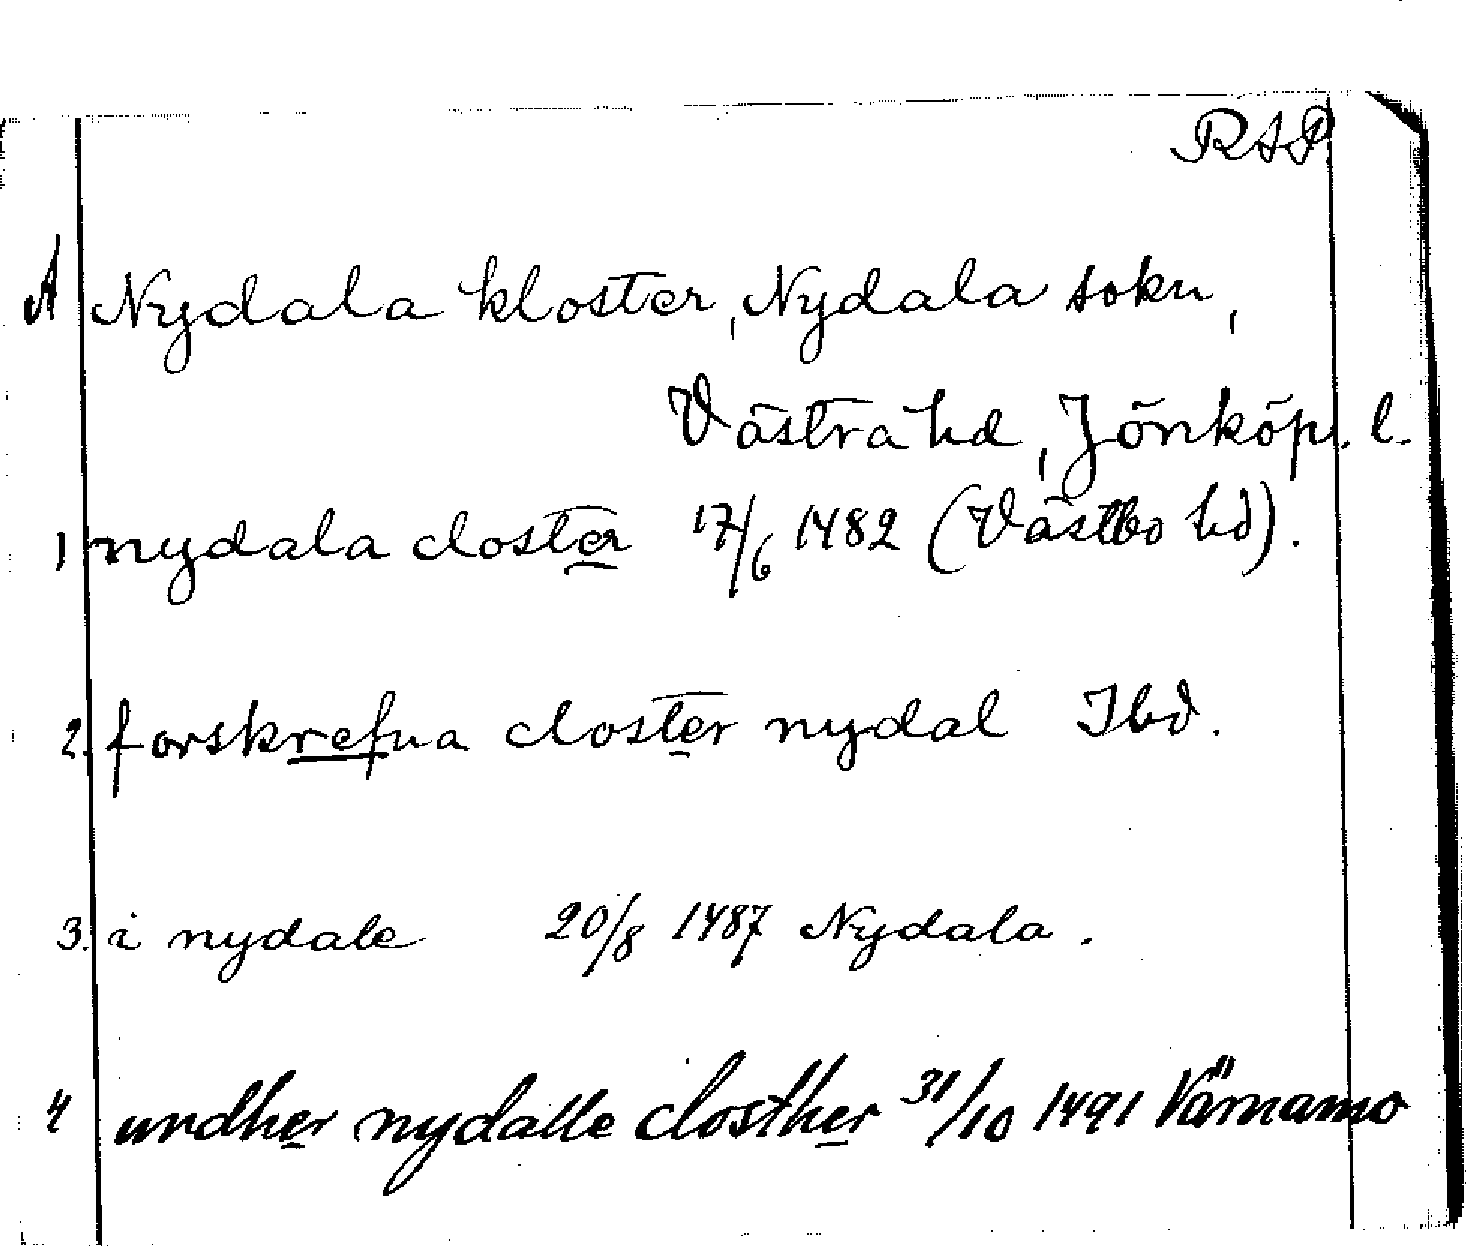 RAP
A Nydala kloster, Nydala sokn,
Västra hd, Jönköp. l.
1 nydala closter 17/6 1482 (Västbo hd).
2. forskrefna closter nydal Ibd.
3. i nydale 20/8 1487 Nydala.
4 undher nydalle closther 31/10 1491 Värnamo